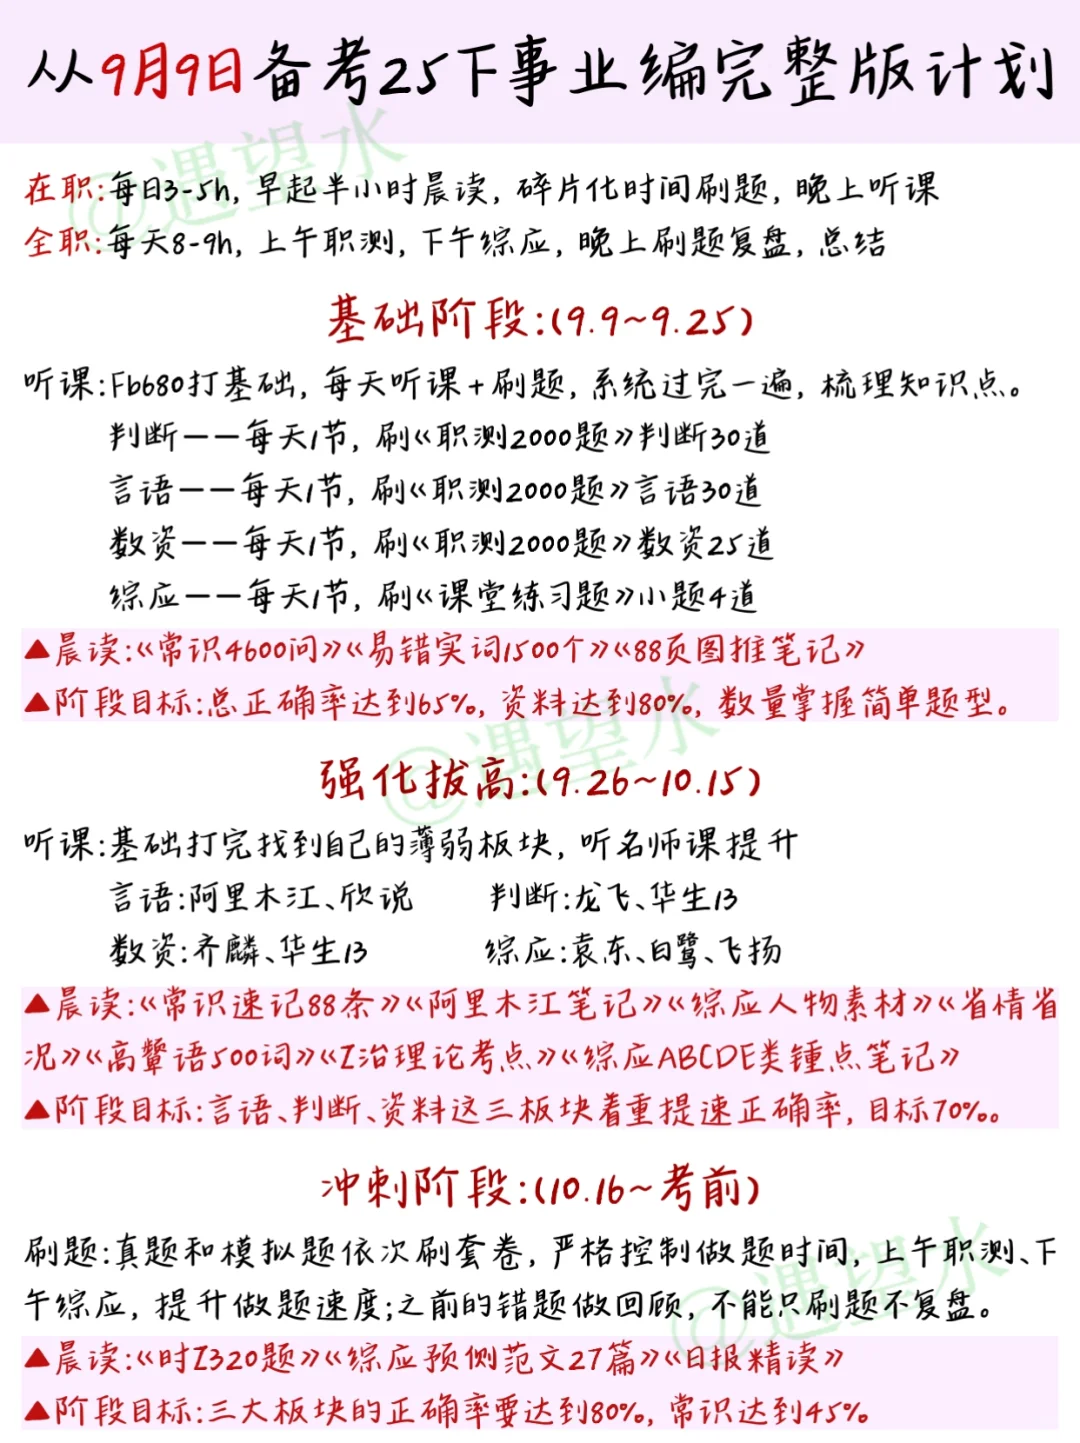 从9月9日备考25下事业编完整版计划
@遇望水
在职:每日3-5h, 早起半小时晨读, 碎片化时间刷题, 晚上听课
全职:每天8-9h, 上午职测, 下午综应, 晚上刷题复盘, 总结
基础阶段:(9.9~9.25)
听课:Fb680打基础, 每天听课+刷题, 系统过完一遍, 梳理知识点。
判断——每天1节, 刷《职测2000题》判断30道
言语——每天1节, 刷《职测2000题》言语30道
数资——每天1节, 刷《职测2000题》数资25道
综应——每天1节, 刷《课堂练习题》小题4道
▲晨读:《常识4600问》《易错实词1500个》《88页图推笔记》
▲阶段目标:总正确率达到65%, 资料达到80%, 数量掌握简单题型。
@遇望水
强化拔高:(9.26~10.15)
听课:基础打完找到自己的薄弱板块, 听名师课提升
言语:阿里木江、欣说 判断:龙飞、华生13
数资:齐麟、华生13 综应:袁东、白鹭、飞扬
▲晨读:《常识速记88条》《阿里木江笔记》《综应人物素材》《省情省
况》《高颦语500词》《Z治理论考点》《综应ABCDE类锺点笔记》
▲阶段目标:言语、判断、资料这三板块着重提速正确率, 目标70%。
冲刺阶段:(10.16~考前)
刷题:真题和模拟题依次刷套卷, 严格控制做题时间, 上午职测、下
午综应, 提升做题速度;之前的错题做回顾, 不能只刷题不复盘。
@遇望水
▲晨读:《时Z320题》《综应预侧范文27篇》《日报精读》
▲阶段目标:三大板块的正确率要达到80%, 常识达到45%